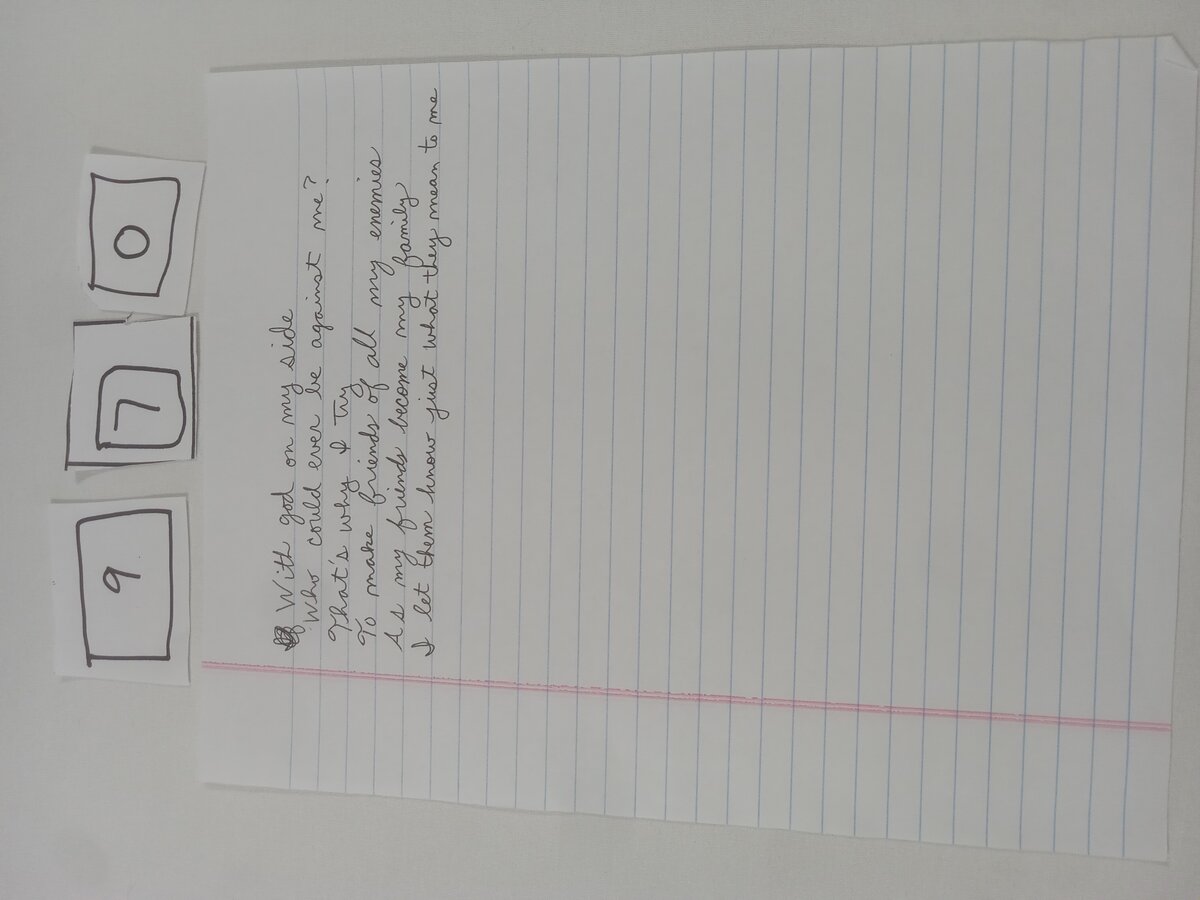 9 7 0
With god on my side
Who could ever be against me?
That's why I try
To make friends of all my enemies
As my friends become my family
I let them know just what they mean to me